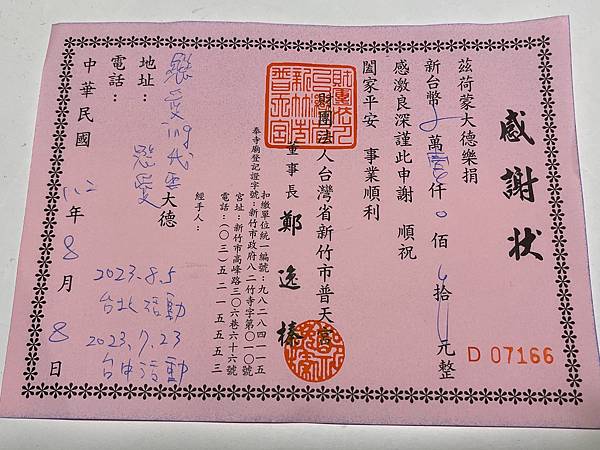 感謝狀
茲荷蒙大德樂捐
新台幣 萬 仟0佰 拾 元整
感激良深謹此申謝 順祝
闔家平安 事業順利
財團法人台灣省新竹市普天宮
董事長 鄭逸榛
扣繳單位統一編號:九八二八四一一五
奉寺廟登記證字號:新竹市政府八二竹寺字第〇一〇號
宮址:新竹市高峰路三〇六巷六十六號
電話:(〇三)五二一五五五三
經手人:
大德
地址:
電話:
中華民國 112年8月8日
2023.8.5
台北活動
2023.7.23
台中活動
D 07166